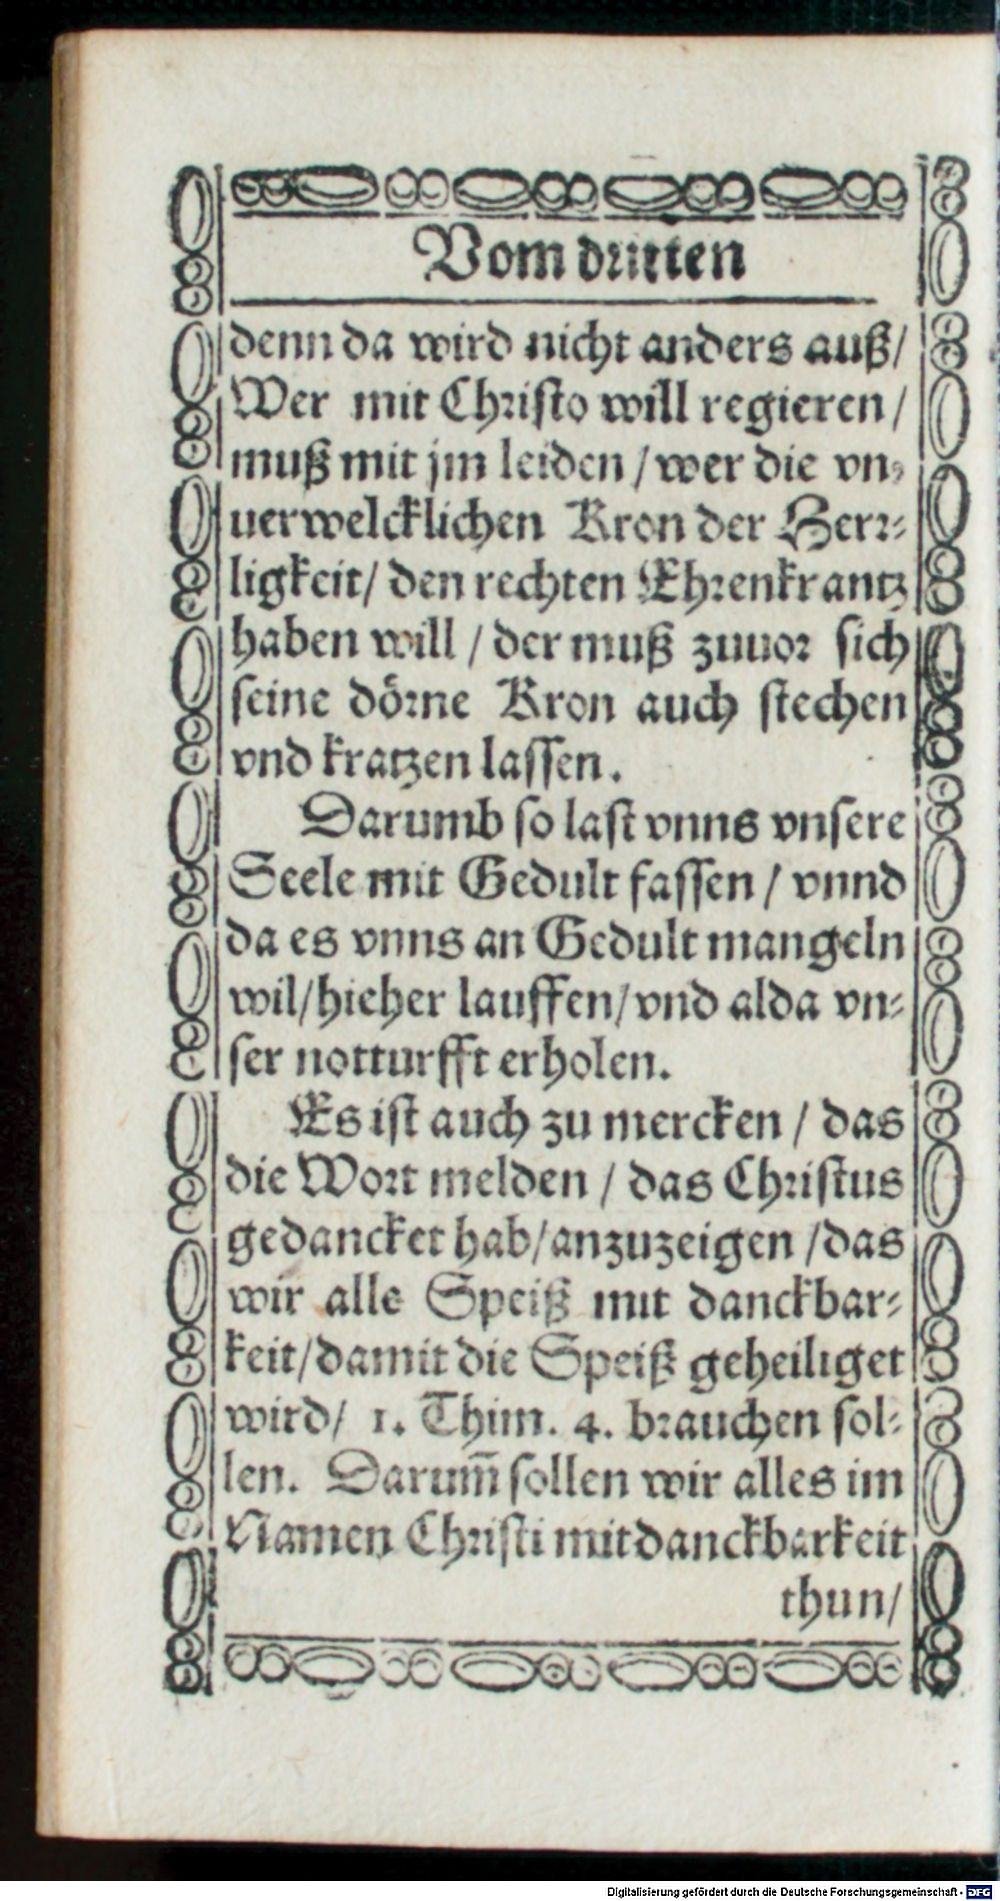 Vom dritten
denn da wird nicht anders auß/
Wer mit Christo will regieren/
muß mit jm leiden / wer die vn-
uerwelcklichen Kron der Herr-
ligkeit/ den rechten Ehrenkrantz
haben will / der muß zuuor sich
seine dörne Kron auch stechen
vnd kratzen lassen.
Darumb so last vnns vnsere
Seele mit Gedult fassen / vnnd
da es vnns an Gedult mangeln
wil/hieher lauffen/vnd alda vn-
ser notturfft erholen.
Es ist auch zu mercken / das
die Wort melden / das Christus
gedancket hab/anzuzeigen /das
wir alle Speiß mit danckbar-
keit/damit die Speiß geheiliget
wird/ 1. Thim. 4. brauchen sol-
len. Darum̃ sollen wir alles im
Namen Christi mit danckbarkeit
thun/
Digitalisierung gefördert durch die Deutsche Forschungsgemeinschaft - DFG